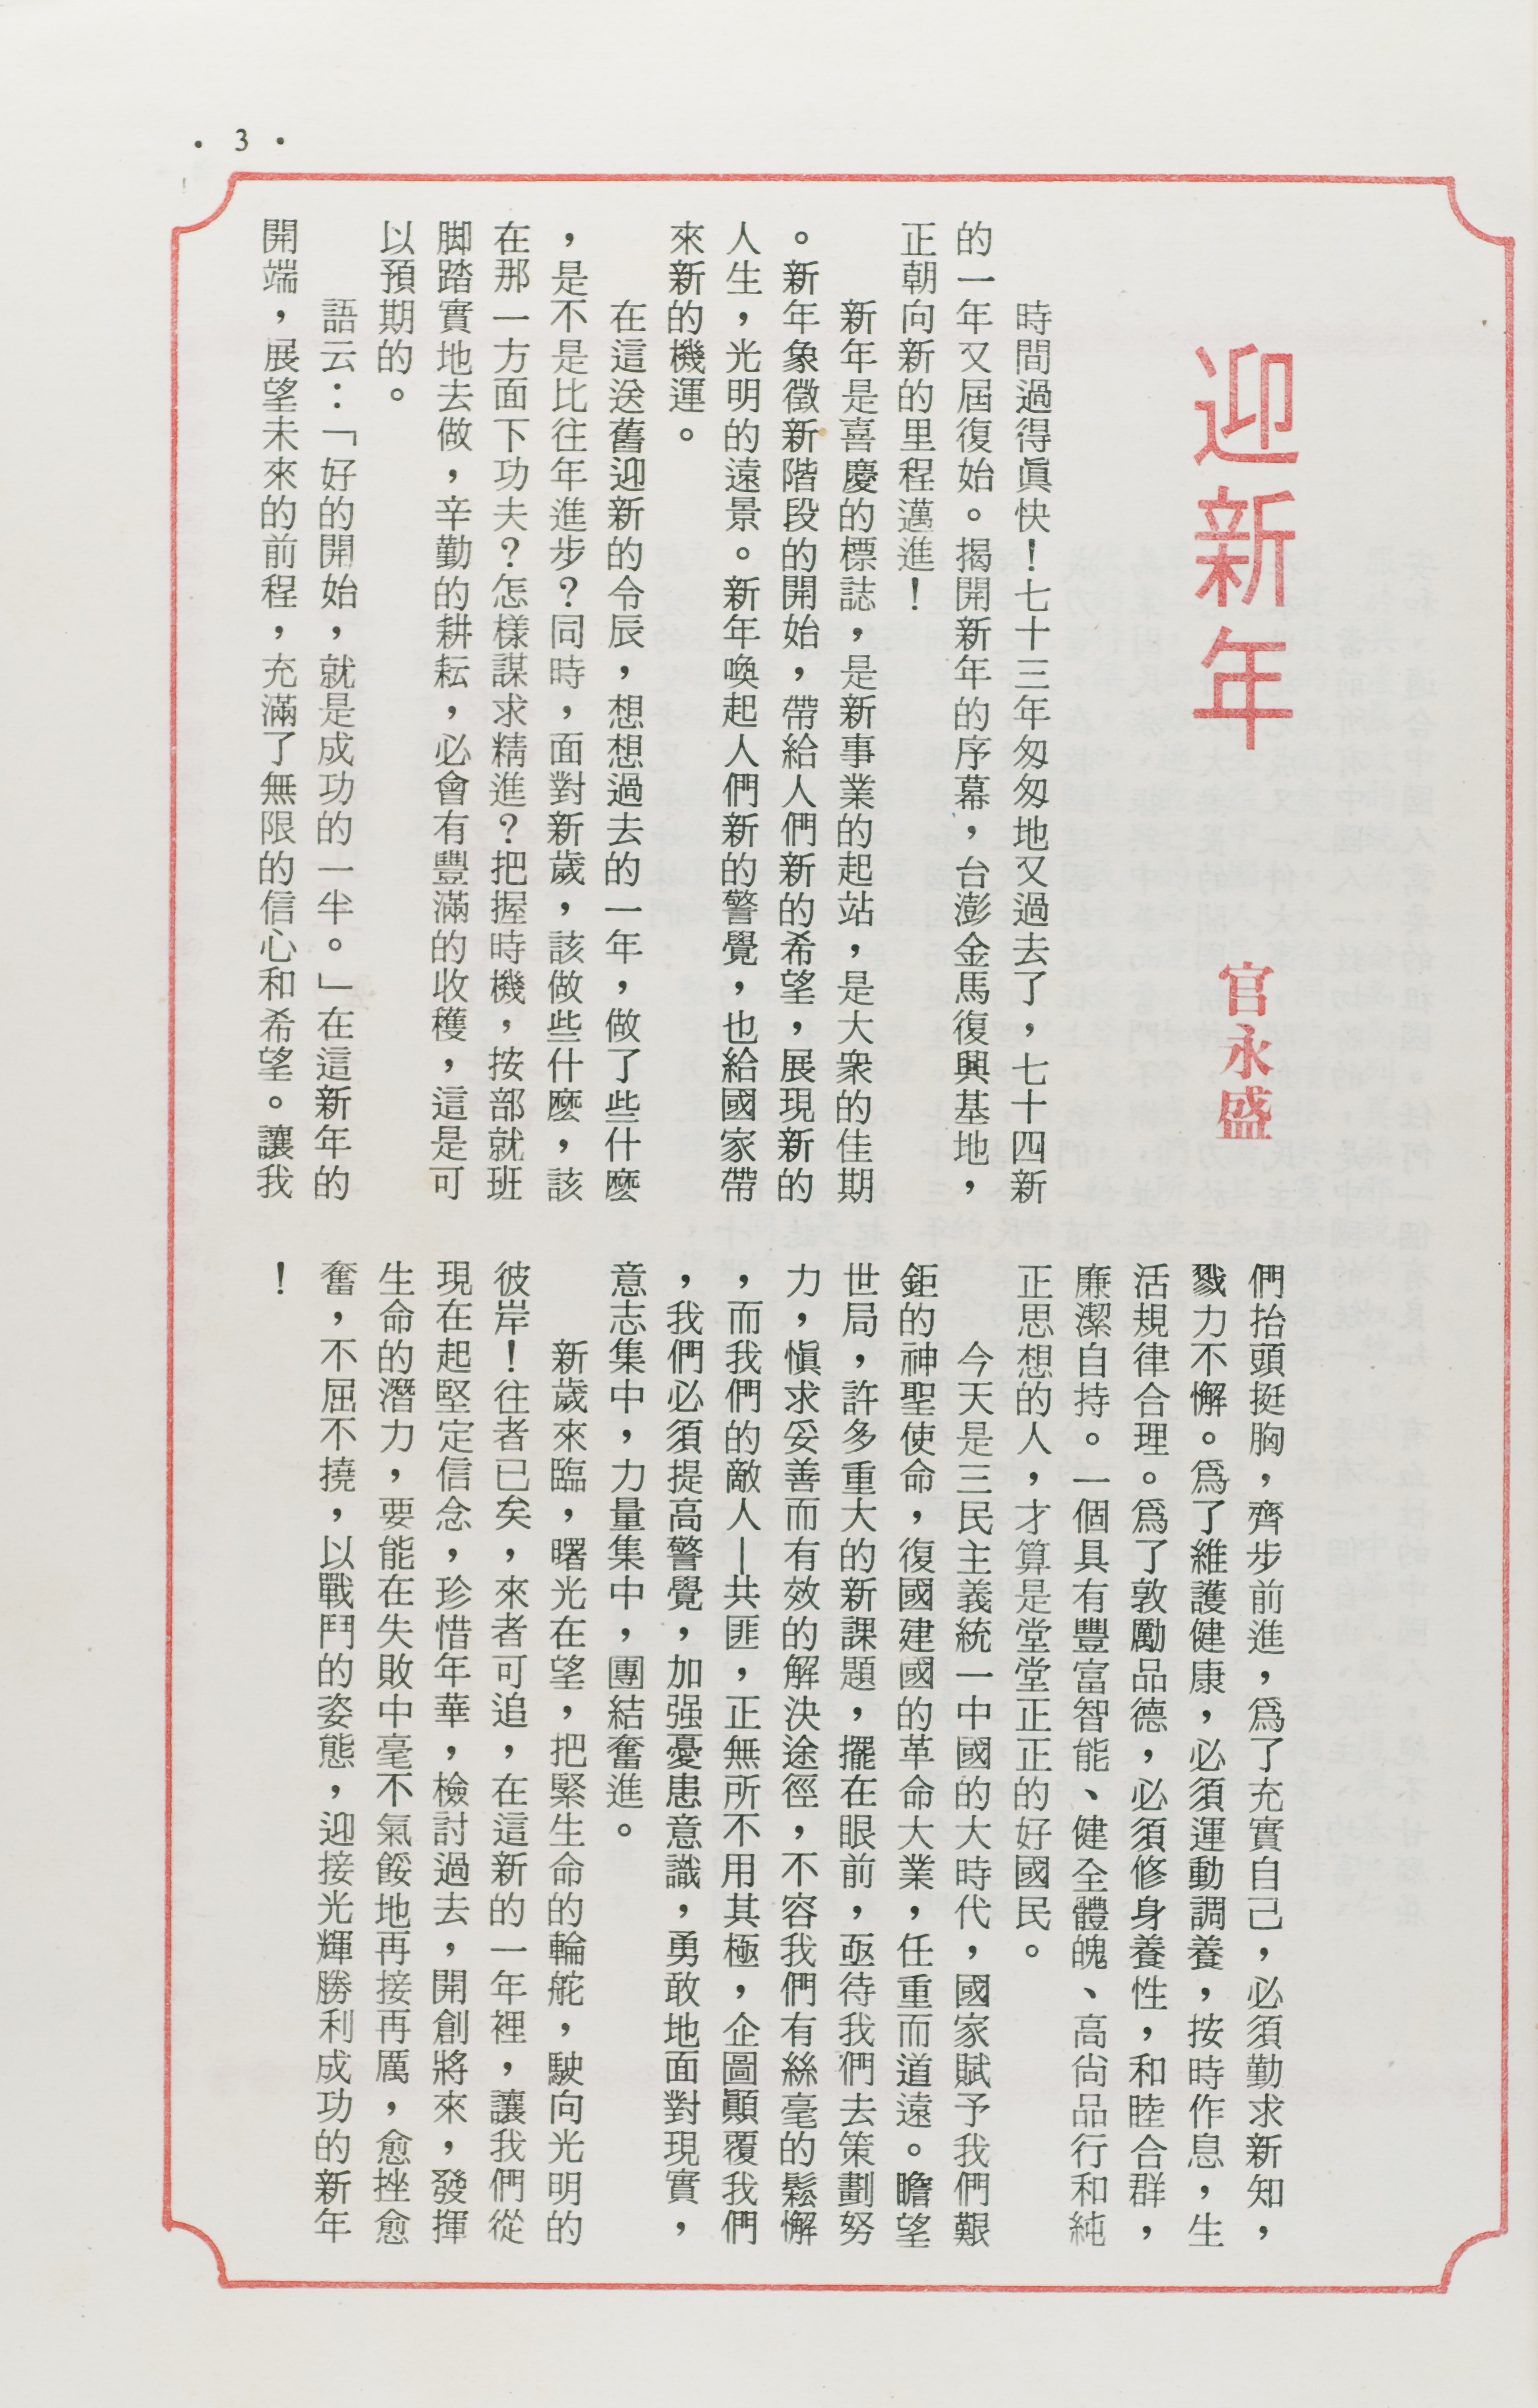 · 3 ·
迎新年
官永盛
時間過得眞快！七十三年匆匆地又過去了，七十四新
的一年又屆復始。揭開新年的序幕，台澎金馬復興基地，
正朝向新的里程邁進！
新年是喜慶的標誌，是新事業的起站，是大衆的佳期
。新年象徵新階段的開始，帶給人們新的希望，展現新的
人生，光明的遠景。新年喚起人們新的警覺，也給國家帶
來新的機運。
在這送舊迎新的令辰，想想過去的一年，做了些什麼
，是不是比往年進步？同時，面對新歲，該做些什麼，該
在那一方面下功夫？怎樣謀求精進？把握時機，按部就班
脚踏實地去做，辛勤的耕耘，必會有豐滿的收穫，這是可
以預期的。
語云：「好的開始，就是成功的一半。」在這新年的
開端，展望未來的前程，充滿了無限的信心和希望。讓我
們抬頭挺胸，齊步前進，爲了充實自己，必須勤求新知，
戮力不懈。爲了維護健康，必須運動調養，按時作息，生
活規律合理。爲了敦勵品德，必須修身養性，和睦合群，
廉潔自持。一個具有豐富智能、健全體魄、高尙品行和純
正思想的人，才算是堂堂正正的好國民。
今天是三民主義統一中國的大時代，國家賦予我們艱
鉅的神聖使命，復國建國的革命大業，任重而道遠。瞻望
世局，許多重大的新課題，擺在眼前，亟待我們去策劃努
力，愼求妥善而有效的解決途徑，不容我們有絲毫的鬆懈
，而我們的敵人—共匪，正無所不用其極，企圖顚覆我們
，我們必須提高警覺，加强憂患意識，勇敢地面對現實，
意志集中，力量集中，團結奮進。
新歲來臨，曙光在望，把緊生命的輪舵，駛向光明的
彼岸！往者已矣，來者可追，在這新的一年裡，讓我們從
現在起堅定信念，珍惜年華，檢討過去，開創將來，發揮
生命的潛力，要能在失敗中毫不氣餒地再接再厲，愈挫愈
奮，不屈不撓，以戰鬥的姿態，迎接光輝勝利成功的新年
！